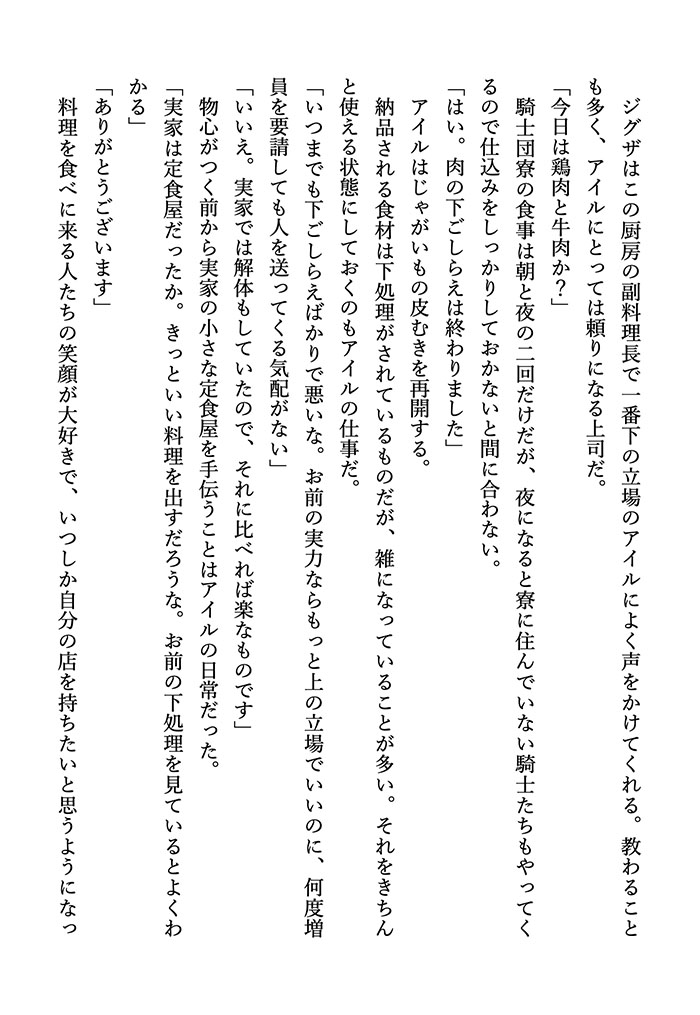 ジグザはこの厨房の副料理長で一番下の立場のアイルによく声をかけてくれる。教わること
も多く、アイルにとっては頼りになる上司だ。
「今日は鶏肉と牛肉か？」
　騎士団寮の食事は朝と夜の二回だけだが、夜になると寮に住んでいない騎士たちもやってく
るので仕込みをしっかりしておかないと間に合わない。
「はい。肉の下ごしらえは終わりました」
　アイルはじゃがいもの皮むきを再開する。
　納品される食材は下処理がされているものだが、雑になっていることが多い。それをきちん
と使える状態にしておくのもアイルの仕事だ。
「いつまでも下ごしらえばかりで悪いな。お前の実力ならもっと上の立場でいいのに、何度増
員を要請しても人を送ってくる気配がない」
「いいえ。実家では解体もしていたので、それに比べれば楽なものです」
　物心がつく前から実家の小さな定食屋を手伝うことはアイルの日常だった。
「実家は定食屋だったか。きっといい料理を出すだろうな。お前の下処理を見ているとよくわ
かる」
「ありがとうございます」
　料理を食べに来る人たちの笑顔が大好きで、いつしか自分の店を持ちたいと思うようになっ